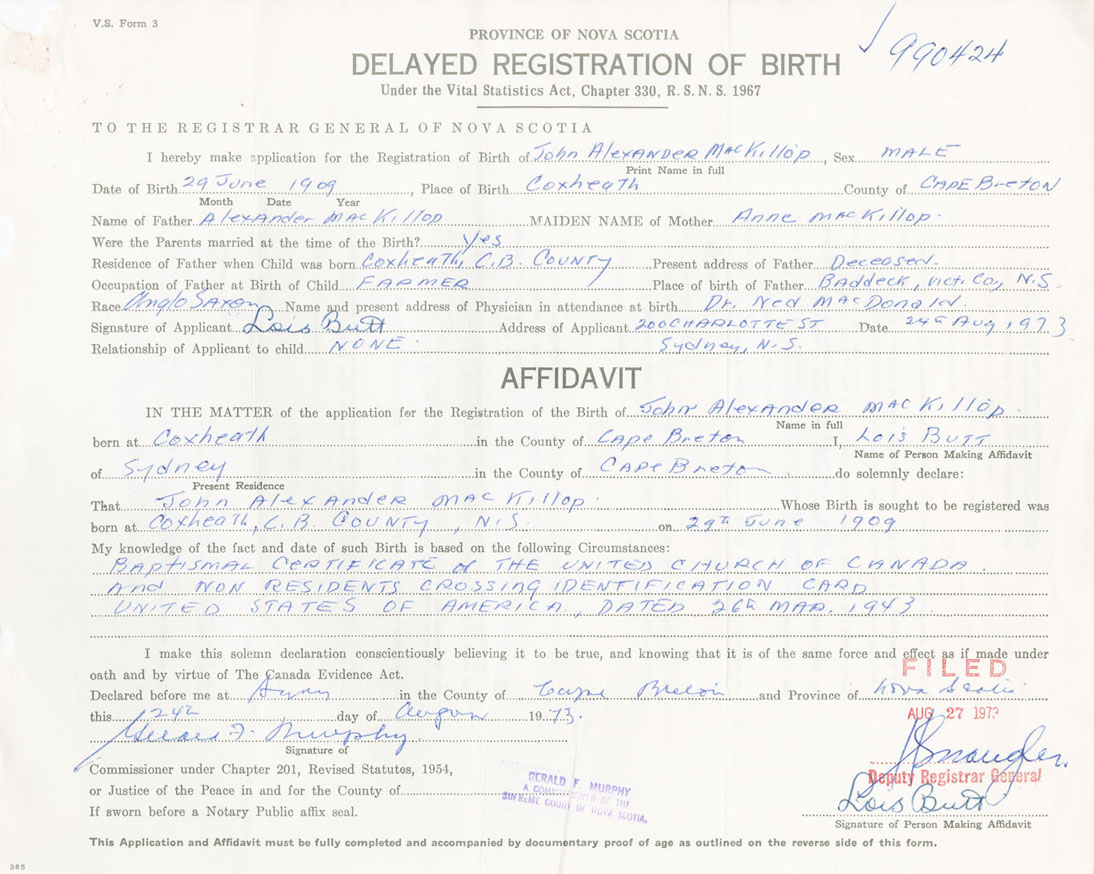 V.S. Form 3
990424
PROVINCE OF NOVA SCOTIA
DELAYED REGISTRATION OF BIRTH
Under the Vital Statistics Act, Chapter 330, R.S.N.S. 1967
TO THE REGISTRAR GENERAL OF NOVA SCOTIA
I hereby make application for the Registration of Birth of John Alexander MacKillop, Sex MALE
Print Name in full
Date of Birth 29 June 1909, Place of Birth Coxheath County of Cape Breton
Month Date Year
Name of Father Alexander MacKillop MAIDEN NAME of Mother Anne MacKillop.
Were the Parents married at the time of the Birth? yes
Residence of Father when Child was born Coxheath, C.B. County Present address of Father Deceased.
Occupation of Father at Birth of Child FARMER Place of birth of Father Baddeck, Vict. Co, N.S.
Race Anglo Saxon Name and present address of Physician in attendance at birth Dr. Ned MacDonald.
Signature of Applicant Lois Butt Address of Applicant 200 CHARLOTTE ST Date 24th Aug 1973
Relationship of Applicant to child NONE Sydney, N.S.
AFFIDAVIT
IN THE MATTER of the application for the Registration of the Birth of John Alexander MacKillop.
Name in full
born at Coxheath in the County of Cape Breton I, Lois Butt
Name of Person Making Affidavit
of Sydney in the County of Cape Breton do solemnly declare:
Present Residence
That John Alexander MacKillop. Whose Birth is sought to be registered was
born at Coxheath, C.B. County, N.S. on 29th June 1909
My knowledge of the fact and date of such Birth is based on the following Circumstances:
Baptismal Certificate of THE UNITED CHURCH OF CANADA
And NON RESIDENTS CROSSING IDENTIFICATION CARD
UNITED STATES OF AMERICA, DATED 26th MAR. 1943
I make this solemn declaration conscientiously believing it to be true, and knowing that it is of the same force and effect as if made under
oath and by virtue of The Canada Evidence Act.
FILED
Declared before me at in the County of Cape Breton and Province of Nova Scotia
this 24th day of August 1973.
AUG 27 1973
Gerald F. Murphy
Signature of
Commissioner under Chapter 201, Revised Statutes, 1954,
Deputy Registrar General
or Justice of the Peace in and for the County of
GERALD F. MURPHY
A COMMISSIONER OF THE
SUPREME COURT OF NOVA SCOTIA,
Lois Butt
If sworn before a Notary Public affix seal.
Signature of Person Making Affidavit
This Application and Affidavit must be fully completed and accompanied by documentary proof of age as outlined on the reverse side of this form.
385